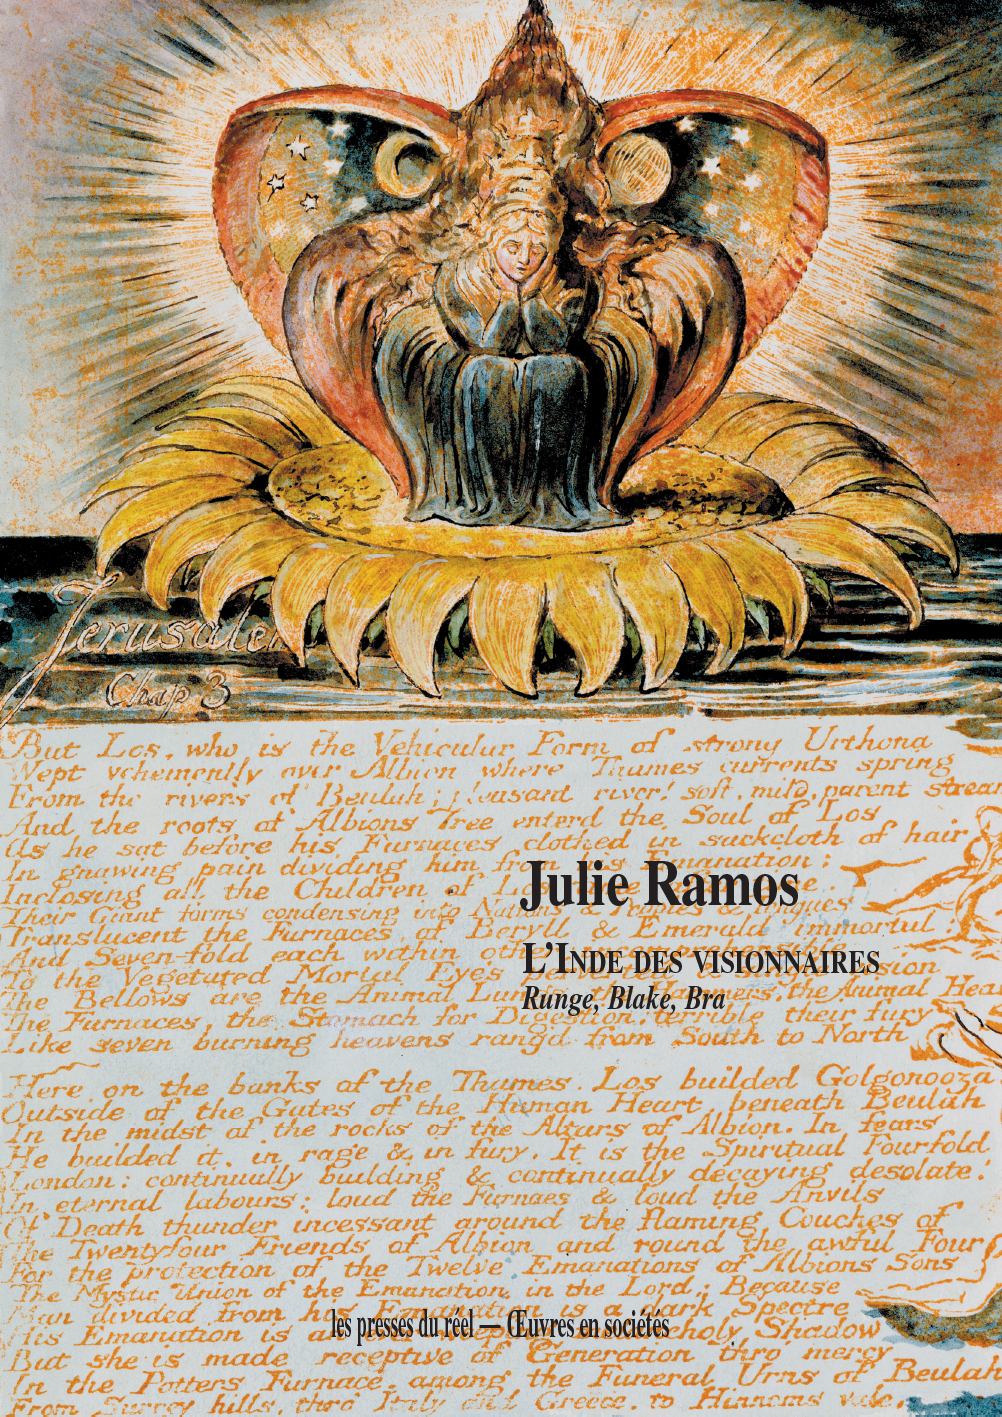 Jerusalem
Chap 3
But Los, who is the Vehicular Form of strong Urthona
Wept vehemently over Albion where Thames currents spring
From the rivers of Beulah; pleasant river! soft, mild, parent stream
And the roots of Albions Tree enterd the Soul of Los
As he sat before his Furnaces clothed in sackcloth of hair
In gnawing pain dividing him from his Emanation;
Inclosing all the Children of Los
Julie Ramos
Their Giant forms condensing into Nations & Peoples & Tongues
Translucent the Furnaces, of Beryll & Emerald immortal:
And Seven-fold each within other
L’INDE DES VISIONNAIRES
To the Vegetated Mortal Eyes
Runge, Blake, Bra
The Bellows are the Animal Lungs the Hammers, the Animal Heart
The Furnaces, the Stomach for Digestion; terrible their fury
Like seven burning heavens rang'd from South to North
Here on the banks of the Thames, Los builded Golgonooza
Outside of the Gates of the Human Heart, beneath Beulah
In the midst of the rocks of the Altars of Albion. In fears
He builded it, in rage & in fury. It is the Spiritual Fourfold
London: continually building & continually decaying desolate:
In eternal labours: loud the Furnaces & loud the Anvils
Of Death thunder incessant around the flaming Couches of
The Twentyfour Friends of Albion and round the awful Four
For the protection of the Twelve Emanations of Albions Sons
The Mystic Union of the Emanation in the Lord; Because
Man divided from his Emanation is a dark Spectre
les presses du réel — Œuvres en sociétés
His Emanation is an Shadow
But she is made receptive of Generation thro mercy
In the Potters Furnace, among the Funeral Urns of Beulah
From Surrey hills, thro Italy and Greece, to Hinnoms vale.